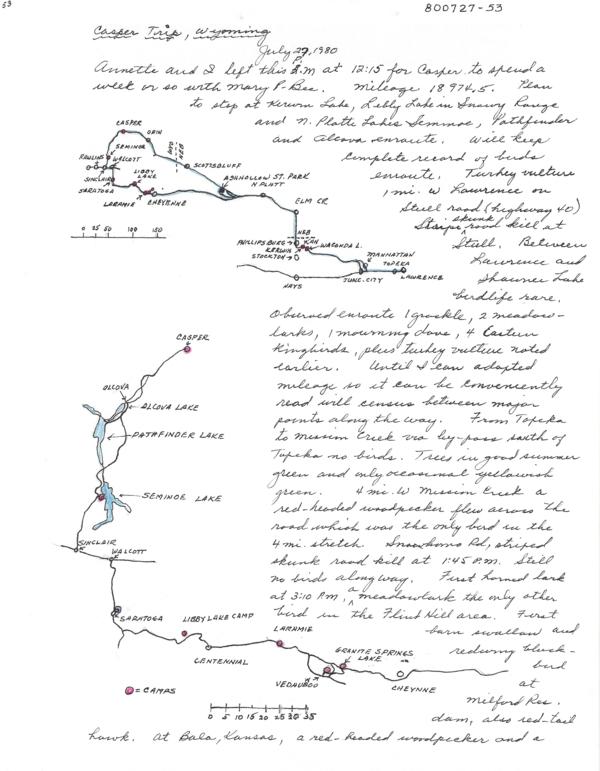 53
800727-53
Casper Trip, Wyoming
July 27, 1980
Annette and I left this P.M at 12:15 for Casper to spend a
week or so with Mary P. Bee. Mileage 18974,5. Plan
to stop at Kerwin Lake, Libby Lake in Snowy Range
and N. Platte Lakes Seminoe, Pathfinder
and Alcova enroute. Will keep
complete record of birds
enroute. Turkey vulture
1 mi. W Lawrence on
Stull road (highway 40)
skunk
Stripe road kill at
Stull. Between
Lawrence and
Shawnee Lake
birdlife rare.
CASPER
ORIN
SEMINOE
RAWLINS
WALCOTT
WYO
NEB
SCOTTSBLUFF
SINCLAIR
LIBBY
LAKE
SARATOGA
LARAMIE
CHEYENNE
ASHHOLLOW ST. PARK
N PLATT
ELM CR
NEB
KAN
PHILLIPSBURG
KERWIN
WACONDA L.
STOCKTON
MANHATTAN
TOPEKA
LAWRENCE
JUNC. CITY
HAYS
0 25 50 100 150
Observed enroute 1 grackle, 2 meadow-
larks, 1 mourning dove, 4 Eastern
Kingbirds, plus turkey vulture noted
earlier. Until I can adapted
mileage so it can be conveniently
read will census between major
points along the way. From Topeka
to Mission Creek via by-pass south of
Topeka no birds. Trees in good summer
green and only occasional yellowish
green. 4 mi. W Mission Creek a
red-headed woodpecker flew across the
road which was the only bird in the
4 mi. stretch. Snokomo Rd, striped
skunk road kill at 1:45 P.M. Still
no birds along way. First horned lark
at 3:10 P.M, a meadowlark the only other
bird in the Flint Hill area. First
barn swallow and
redwing black-
bird
at
Milford Res.
dam, also red-tail
hawk. At Bala, Kansas, a red-headed woodpecker and a
CASPER
ALCOVA
ALCOVA LAKE
PATHFINDER LAKE
SEMINOE LAKE
SINCLAIR
WALCOTT
SARATOGA
LIBBY LAKE CAMP
LARAMIE
CENTENNIAL
GRANITE SPRINGS
LAKE
VEDAUBOO
CHEYNNE
= CAMPS
0 5 10 15 20 25 30 35